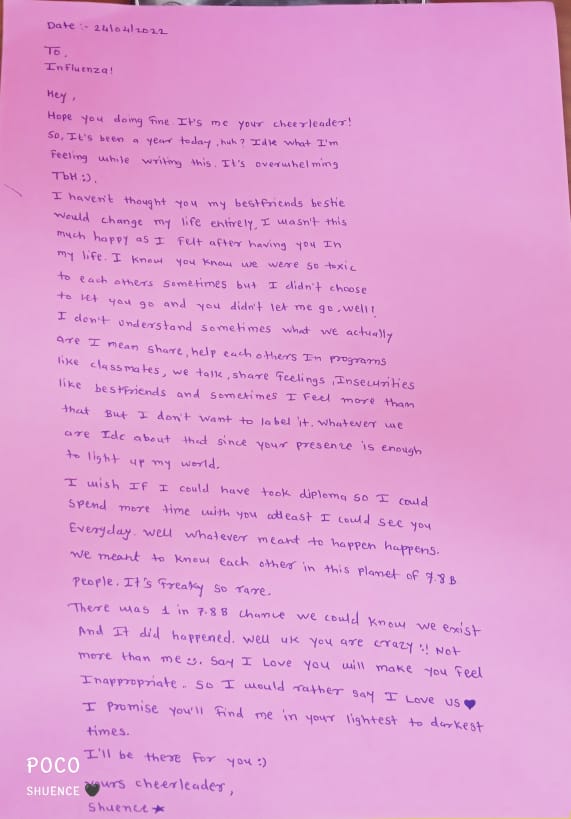 Date :- 24/04/2022
To,
Influenza!
Hey,
Hope you doing fine. It's me your cheerleader!
So, It's been a year today, huh? Idk what I'm
feeling while writing this. It's overwhelming
TbH :).
I haven't thought you my bestfriends bestie
would change my life entirely, I wasn't this
much happy as I felt after having you In
my life. I know you know we were so toxic
to each others sometimes but I didn't choose
to let you go and you didn't let me go. well!
I don't understand sometimes what we actually
are I mean share, help each others In programs
like classmates, we talk, share feelings, Insecurities
like bestfriends and sometimes I feel more than
that But I don't want to label it. whatever we
are Idc about that since your presence is enough
to light up my world.
I wish If I could have took diploma so I could
spend more time with you atleast I could see you
Everyday. well whatever meant to happen happens.
we meant to know each other in this planet of 7.8 B
people. It's freaky so rare.
There was 1 in 7.8 B chance we could know we exist
And It did happened. well uk you are crazy :!! Not
more than me :). Say I Love you will make you feel
Inappropriate.. so I would rather say I Love us ♥
I promise you'll find me in your lightest to darkest
times.
I'll be there for you :)
yours cheerleader,
Shuence ★
POCO
SHUENCE 🖤